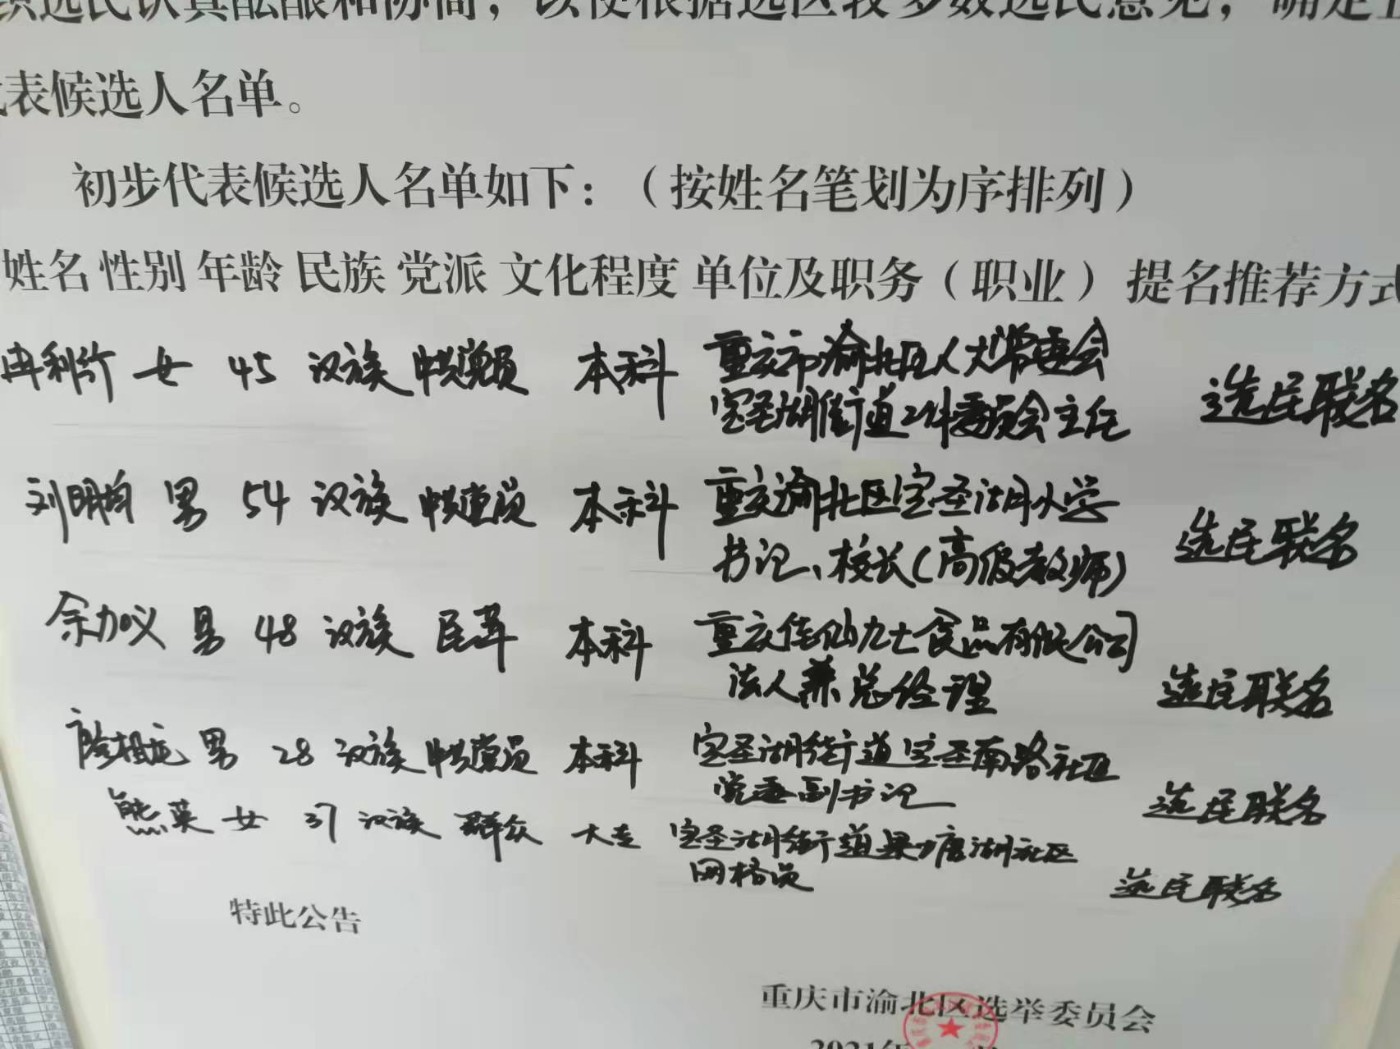 织选民认真酝酿和协商，以便根据选区较多数选民意见，确定正
代表候选人名单。
初步代表候选人名单如下：（按姓名笔划为序排列）
姓名 性别 年龄 民族 党派 文化程度 单位及职务（职业） 提名推荐方式
冉利竹 女 45 汉族 中共党员 本科 重庆市渝北区人大常委会 选民联名
宝圣湖街道工作委员会主任
刘明均 男 54 汉族 中共党员 本科 重庆渝北区宝圣湖小学 选民联名
书记、校长（高级教师）
余加义 男 48 汉族 民革 本科 重庆佳仙九七食品有限公司 选民联名
法人兼总经理
龙 男 28 汉族 中共党员 本科 宝圣湖街道宝圣南路社区 选民联名
党委副书记
熊英 女 37 汉族 群众 大专 宝圣湖街道果塘湖社区 选民联名
网格员
特此公告
重庆市渝北区选举委员会
2021年